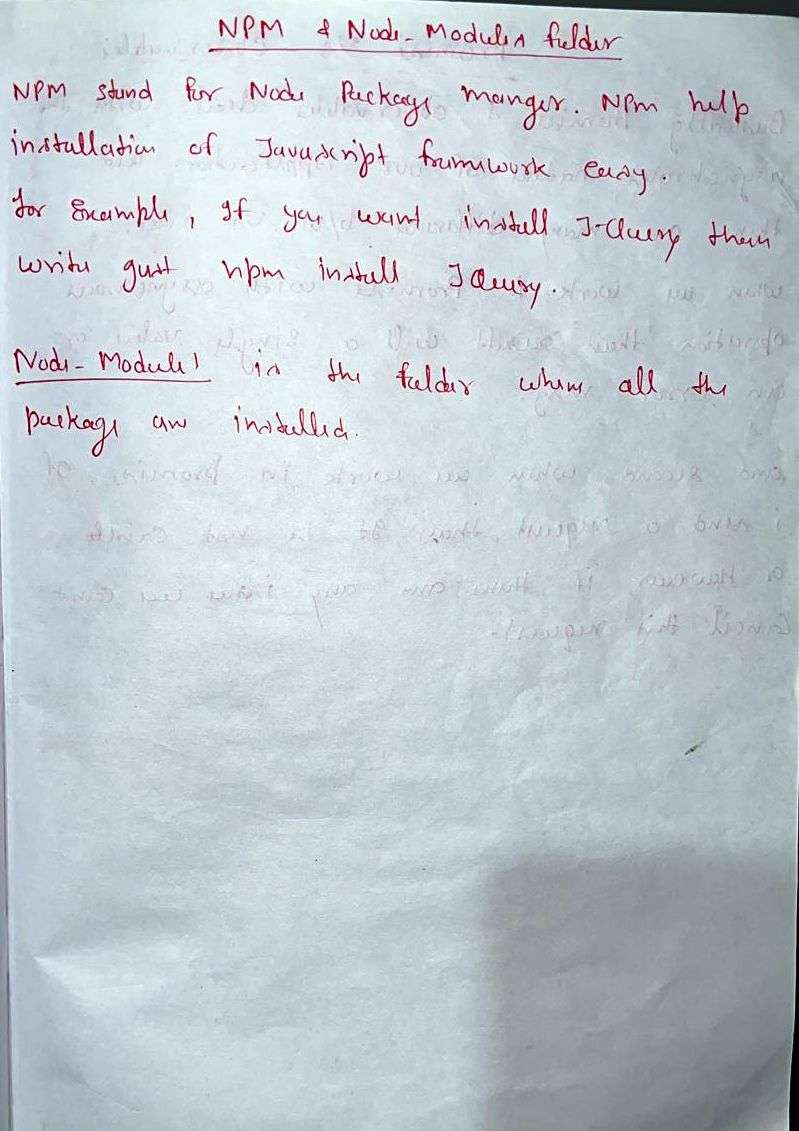 NPM & Node-Modules folder
NPM stand for Node Package manger. NPM help
installation of Javascript framework easy.
for Example, If you want install J-Query then
write gust npm install JQuery.
Node-Modules is the folder where all the
package are installed.